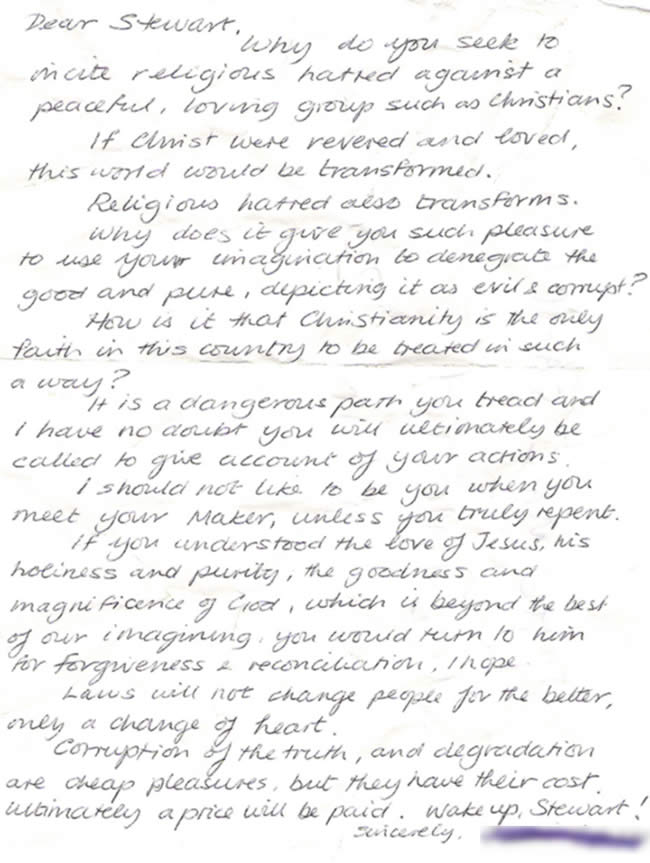 Dear Stewart,
Why do you seek to
incite religious hatred against a
peaceful, loving group such as Christians?
If Christ were revered and loved,
this world would be transformed.
Religious hatred also transforms.
Why does it give you such pleasure
to use your imagination to denegrate the
good and pure, depicting it as evil & corrupt?
How is it that Christianity is the only
faith in this country to be treated in such
a way?
It is a dangerous path you tread and
I have no doubt you will ultimately be
called to give account of your actions.
I should not like to be you when you
meet your Maker, unless you truly repent.
If you understood the love of Jesus, his
holiness and purity, the goodness and
magnificence of God, which is beyond the best
of our imagining, you would turn to him
for forgiveness & reconciliation, I hope.
Laws will not change people for the better,
only a change of heart.
Corruption of the truth, and degradation
are cheap pleasures, but they have their cost.
Ultimately a price will be paid. Wake up, Stewart!
Sincerely,